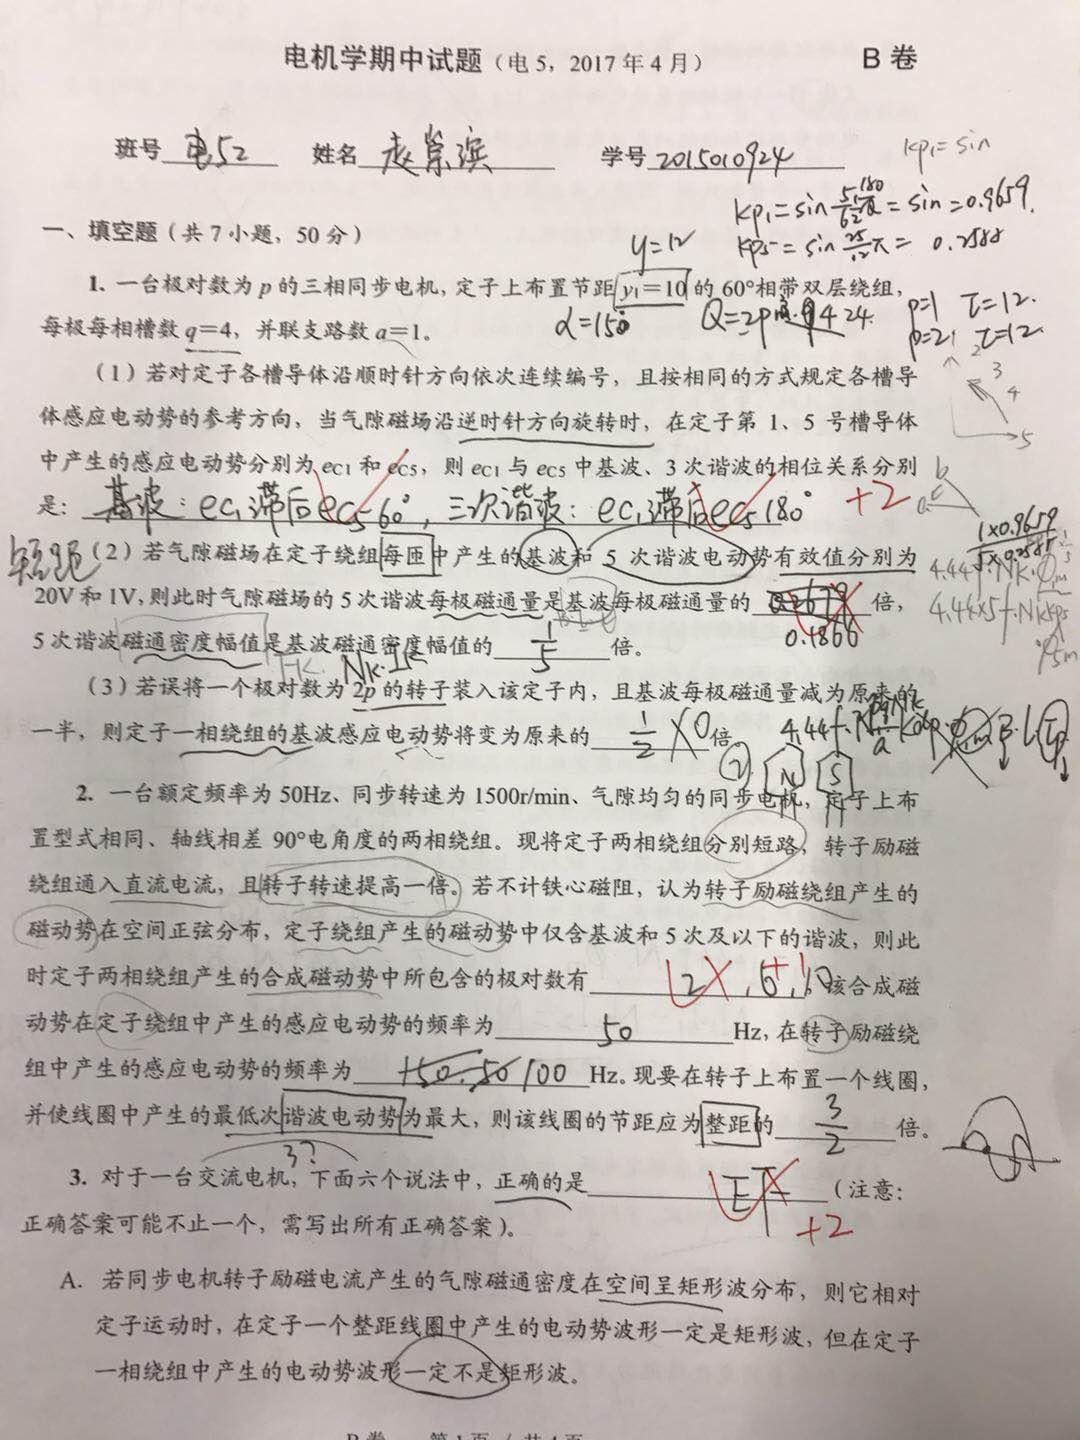 电机学期中试题（电5，2017年4月） B卷
班号 电52 姓名 赵崇滨 学号 2015010924
kp1=sin
kp1=sin = sin =0.9659.
一、填空题（共7小题，50分）
y=12 kp5=sin π= 0.2588
1. 一台极对数为p的三相同步电机，定子上布置节距y₁=10的60°相带双层绕组，
α=15° p=1 τ=12.
每极每相槽数q=4，并联支路数a=1。
p=2 τ=12.
（1）若对定子各槽导体沿顺时针方向依次连续编号，且按相同的方式规定各槽导
体感应电动势的参考方向，当气隙磁场沿逆时针方向旋转时，在定子第1、5号槽导体
中产生的感应电动势分别为eC1和eC5，则eC1与eC5中基波、3次谐波的相位关系分别
是：基波：ec1滞后ec5 60°，三次谐波：ec1滞后ec5 180° +2
短距
（2）若气隙磁场在定子绕组每匝中产生的基波和5次谐波电动势有效值分别为
20V和1V，则此时气隙磁场的5次谐波每极磁通量是基波每极磁通量的 倍，
0.1866
5次谐波磁通密度幅值是基波磁通密度幅值的 1/5 倍。
（3）若误将一个极对数为2p的转子装入该定子内，且基波每极磁通量减为原来的
一半，则定子一相绕组的基波感应电动势将变为原来的 1/2 0 倍
② N S
2. 一台额定频率为50Hz、同步转速为1500r/min、气隙均匀的同步电机，定子上布
置型式相同、轴线相差90°电角度的两相绕组。现将定子两相绕组分别短路，转子励磁
绕组通入直流电流，且转子转速提高一倍。若不计铁心磁阻，认为转子励磁绕组产生的
磁动势在空间正弦分布，定子绕组产生的磁动势中仅含基波和5次及以下的谐波，则此
时定子两相绕组产生的合成磁动势中所包含的极对数有 2，6，10 该合成磁
+1
动势在定子绕组中产生的感应电动势的频率为 50 Hz，在转子励磁绕
组中产生的感应电动势的频率为 100 Hz。现要在转子上布置一个线圈，
并使线圈中产生的最低次谐波电动势为最大，则该线圈的节距应为整距的 3/2 倍。
3?
3. 对于一台交流电机，下面六个说法中，正确的是 EF （注意：
+2
正确答案可能不止一个，需写出所有正确答案）。
A. 若同步电机转子励磁电流产生的气隙磁通密度在空间呈矩形波分布，则它相对
定子运动时，在定子一个整距线圈中产生的电动势波形一定是矩形波，但在定子
一相绕组中产生的电动势波形一定不是矩形波。
B卷 第1页 / 共4页